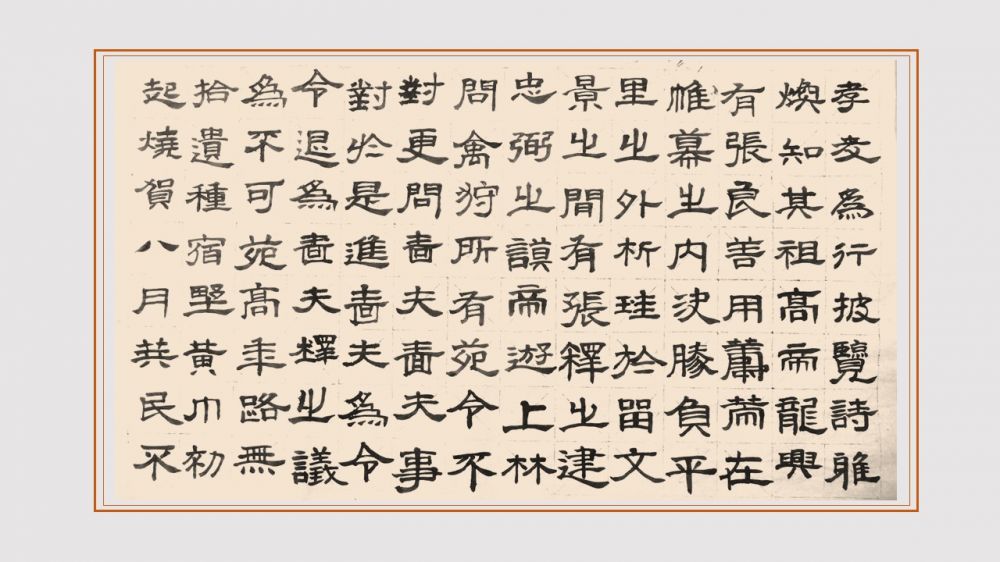 孝友為行披覽詩雅
煥知其祖高帝龍興
有張良善用籌策在
帷幕之内決勝負千
里之外析珪於留文
景之間有張釋之建
忠弼之謨帝遊上林
問禽狩所有苑令不
對更問嗇夫嗇夫事
對於是進嗇夫為令
令退為嗇夫釋之議
為不可苑高年路無
拾遺種宿野黃巾初
起燒賀八月筭民不